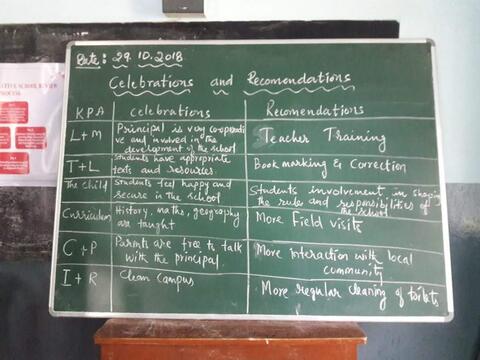 Date: 29.10.2018
Celebrations and Recomendations
KPA
Celebrations
Recomendations
L+M
Principal is very co-operati
ve and involved in the
development of the school
Teacher Training
T+L
Students have appropriate
texts and resources.
Book marking & Correction
The child
Students feel happy and
secure in the school
Students involvement in shaping
the rules and responsibilities of
the school
Curriculum
History, maths, geography
are taught
More Field visits
C+P
Parents are free to talk
with the principal.
More interaction with local
community.
I+R
Clean Campus
More regular cleaning of toilets
SCHOOL REVIEW
PROCESS